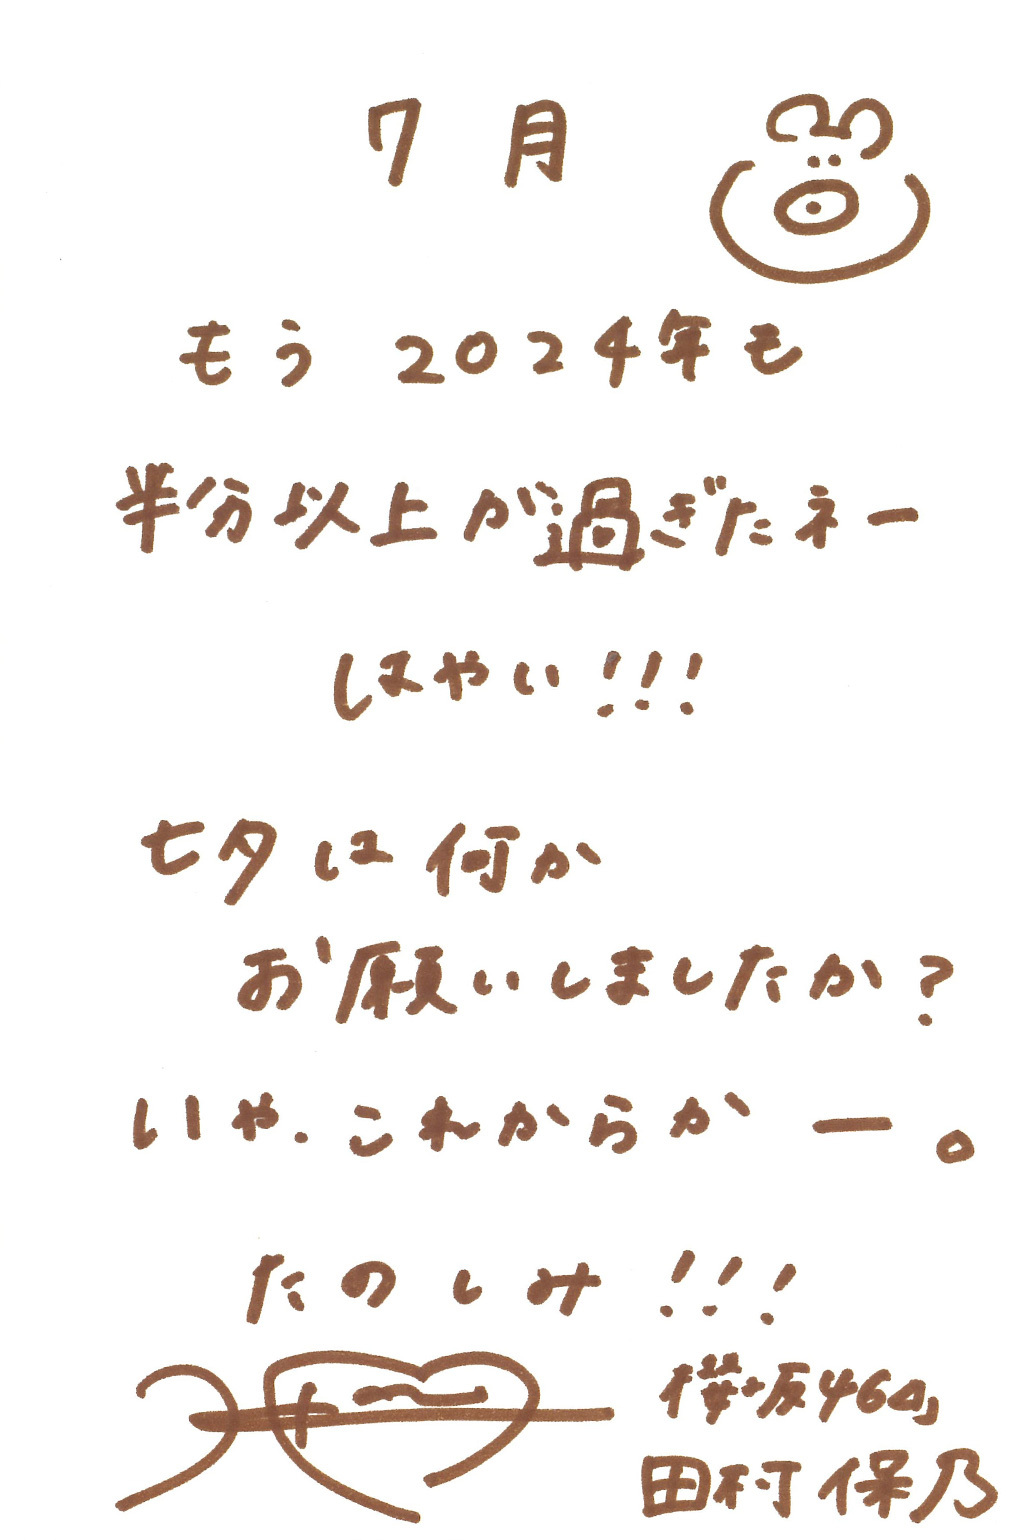 7月
もう 2024年も
半分以上が過ぎたネー
はやい!!!
七夕は何か
お願いしましたか?
いや、これからかー。
たのしみ!!!
櫻坂46
田村保乃